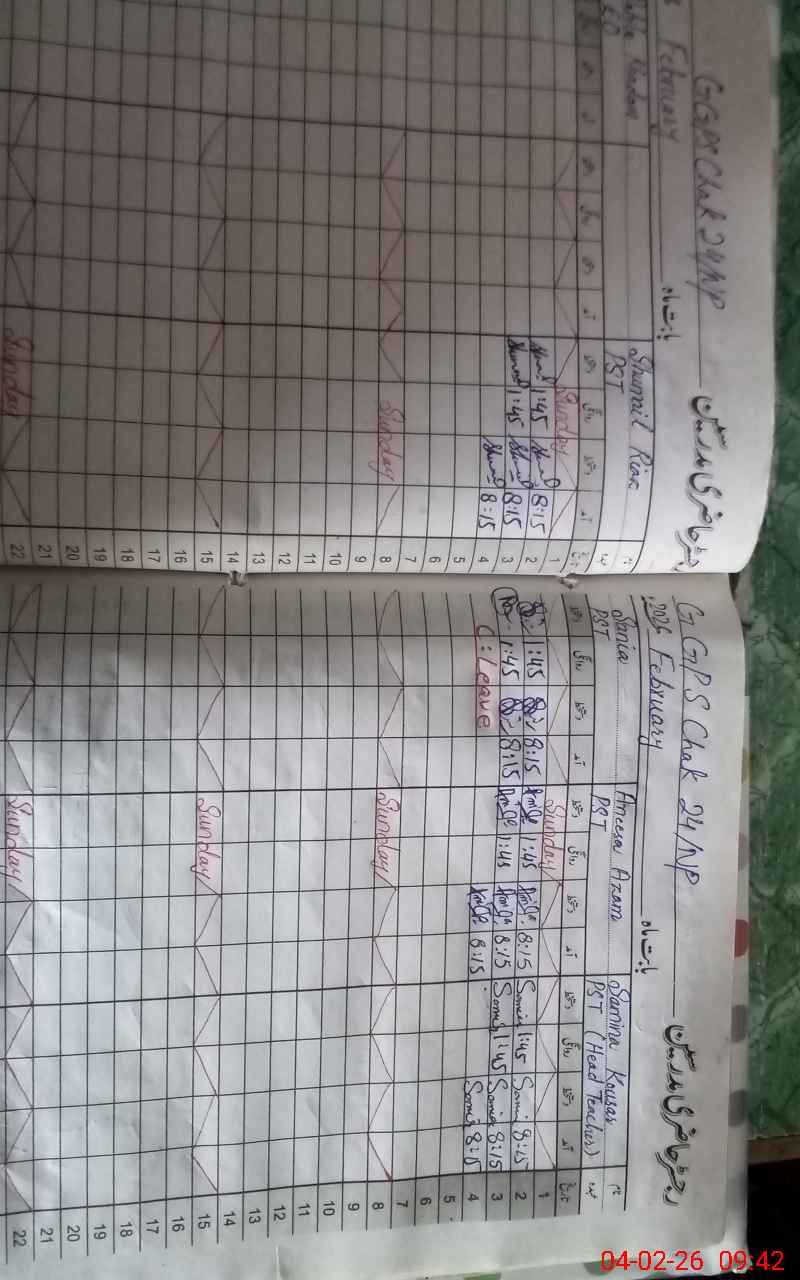 رجسٹر حاضری مدرسین
GGPS Chak 24/NP
بابت ماہ
February
Shumail Riaz
PST
تاریخ
آمد
دستخط
روانگی
دستخط
1 Sunday
2 8:15 1:45
3 8:15 1:45
4 8:15
5
6
7
8 Sunday
9
10
11
12
13
14
15
16
17
18
19
20
21
22 Sunday
رجسٹر حاضری مدرسین
G GPS Chak 24/NP
بابت ماہ
2026 February
Samina Kousar
PST (Head Teacher)
Ameesa Azam
PST
Sania
PST
تاریخ
آمد
دستخط
روانگی
دستخط
1 Sunday
2 8:15 1:45 8:15 1:45 8:15 1:45
3 8:15 1:45 8:15 1:45 8:15 1:45
4 8:15 8:15 C: Leave
5
6
7
8 Sunday
9
10
11
12
13
14
15 Sunday
16
17
18
19
20
21
22 Sunday
04-02-26 09:42